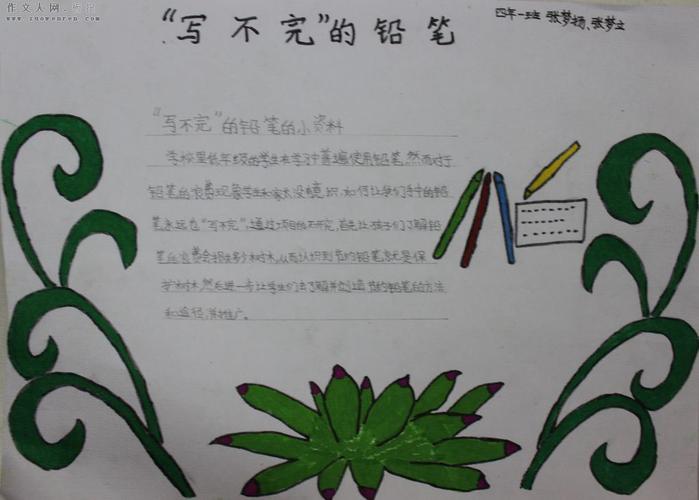 作文人网
www.zuowenren.com
“写不完”的铅笔
四年一班 张梦扬、张梦立
“写不完”的铅笔的小资料
学校里低年级的学生在学习中普遍使用铅笔,然而对于
铅笔的浪费现象学生和家长没有意识,如何让我们手中的铅
笔永远也“写不完”,通过项目的研究,首先让孩子们了解铅
笔的浪费会损失多少树木,从而认识到节约铅笔就是保
护树木,然后进一步让学生们去了解并
节约铅笔的方法
和途径,并推广。